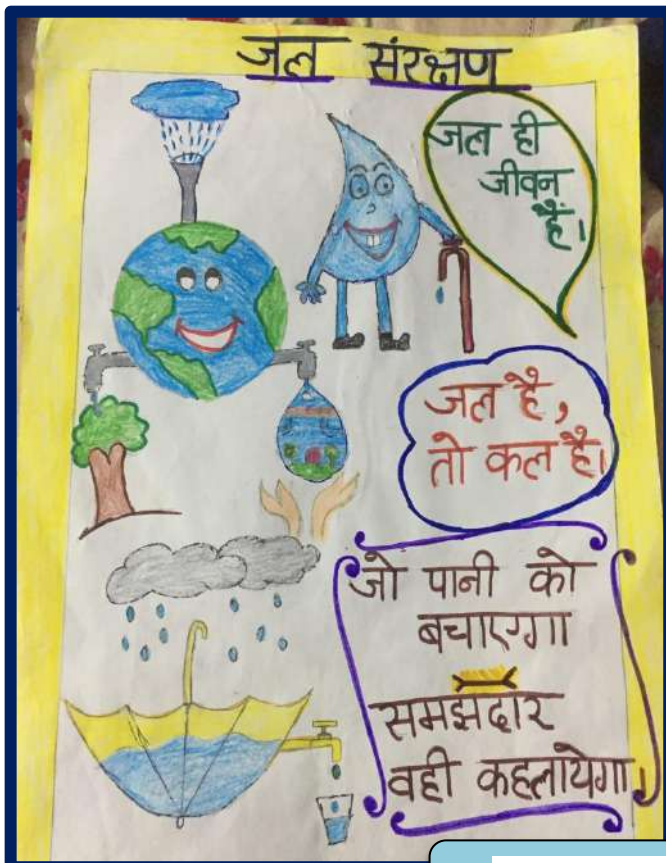 जल संरक्षण
जल ही
जीवन
हैं।
जल है,
तो कल है।
जो पानी को
बचाएगा
समझदार
वही कहलायेगा।